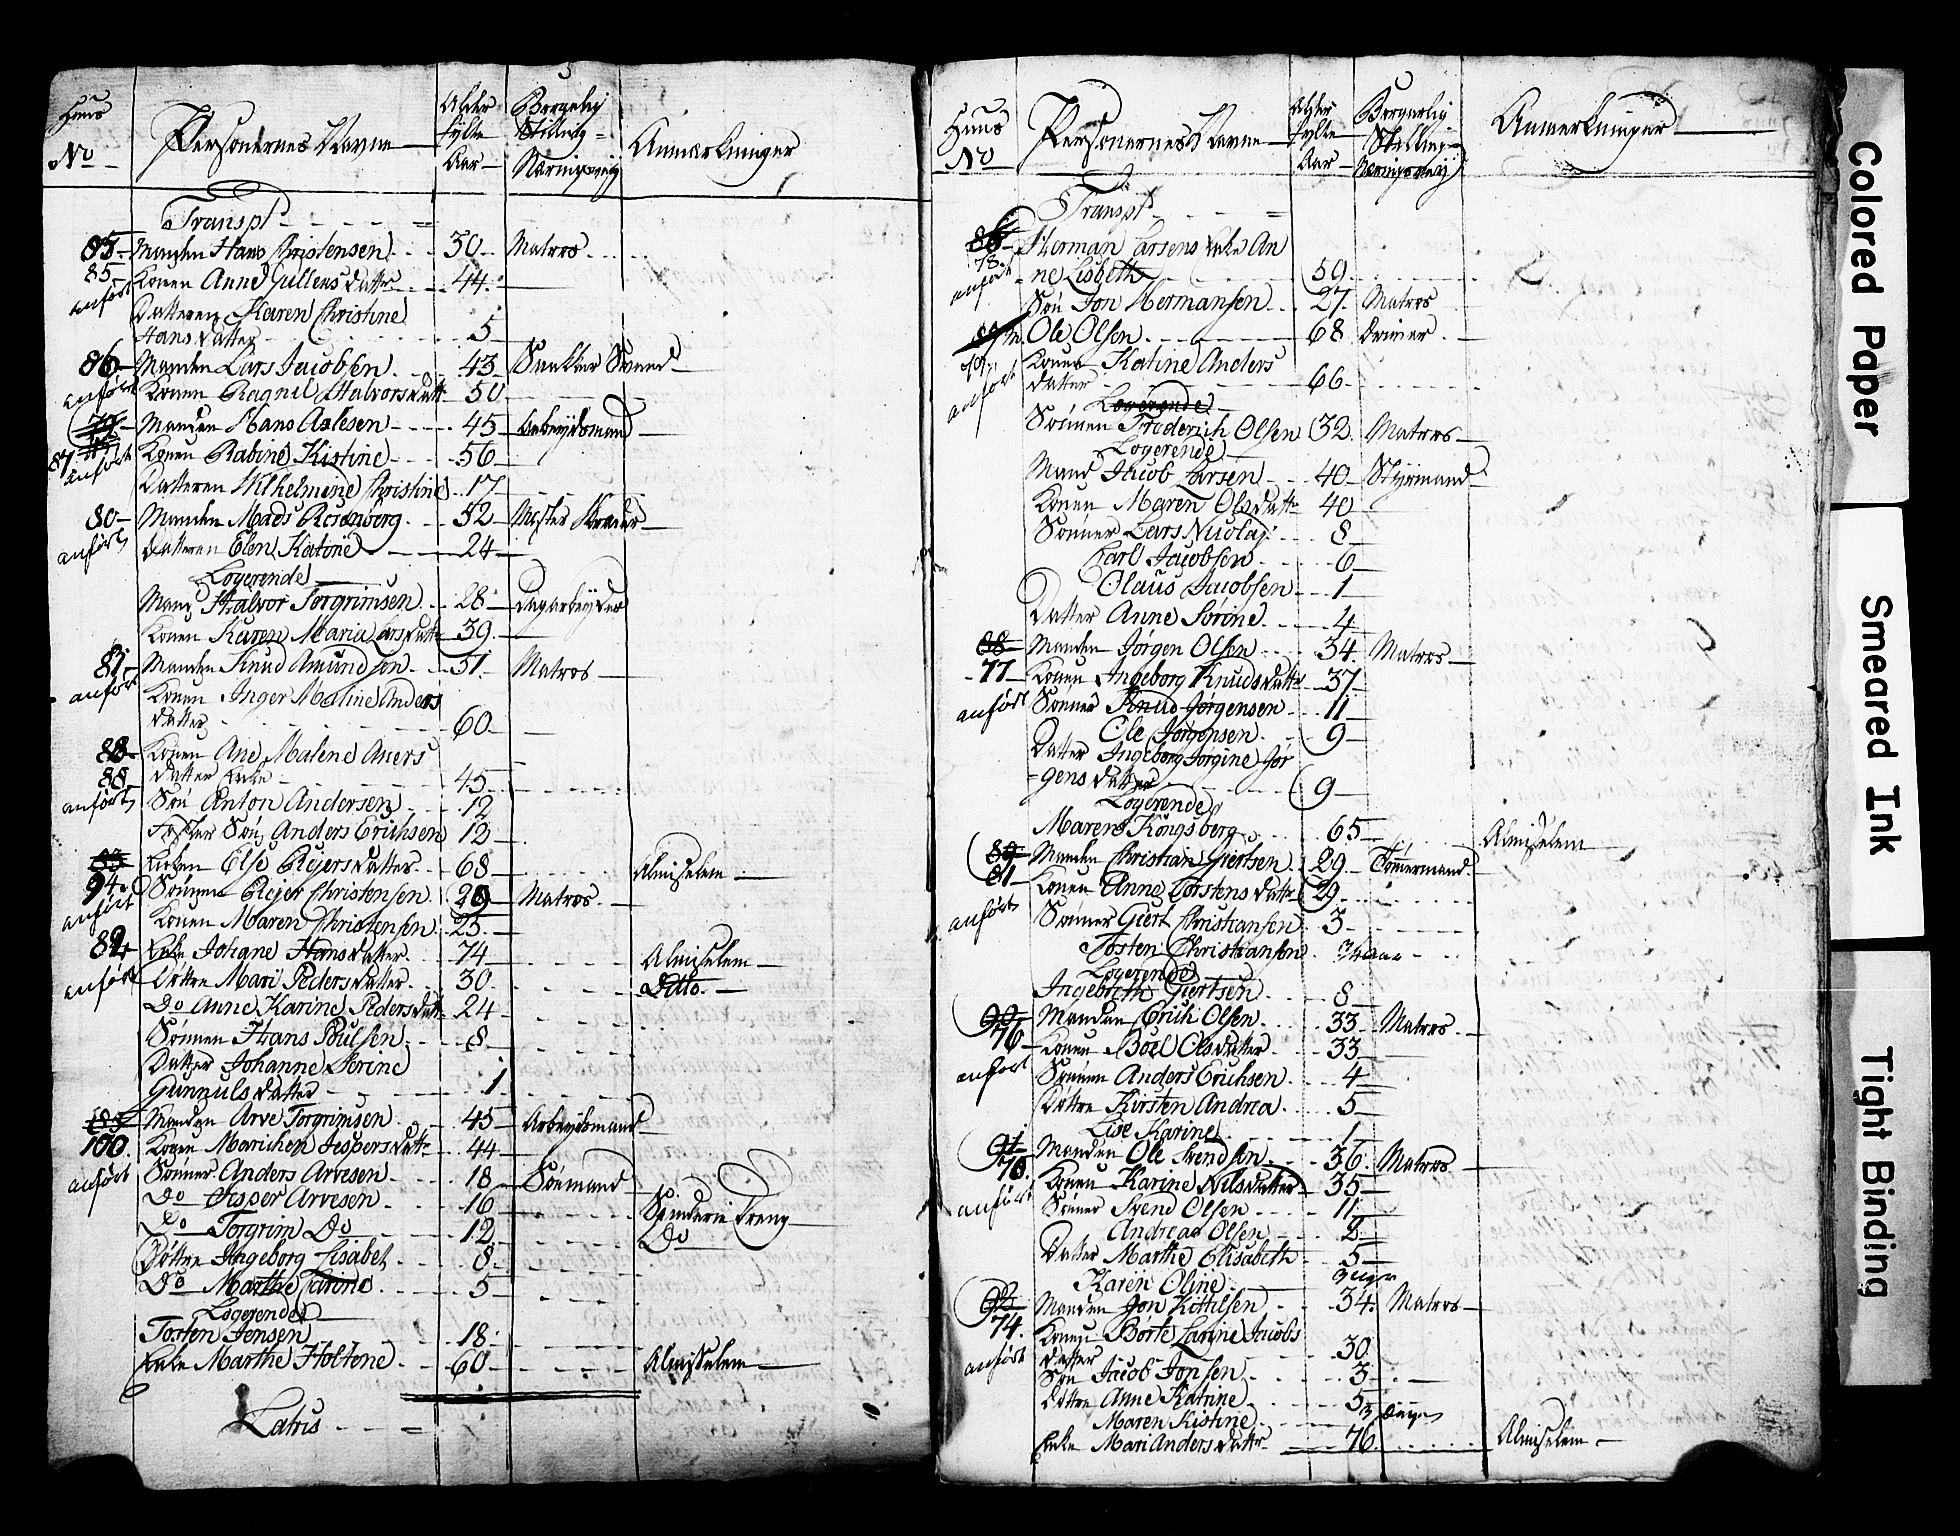 Huus No
Personernes Navne
Alder fylte Aar
Borgerlig Stilling Næringsvej
Anmerkninger
Transpt
85 Manden Hans Christensen 30 Matros
85 Konen Anne Gullens datter 44
anført
Datteren Karen Christine
Hans datter 5
86 Manden Lars Jacobsen 43
anført Konen Ragnil Halvors datt 50
Manden Hans Aslesen 45 Arbeydsmand
87 Konen Rabine Kistine 56
anført
Datteren Wilhelmine Christine 17
80 Manden Mads Rosenberg 52 Mester
anført Datteren Elen Katrine 24
Logerende
Mand Halvor Torgrimsen 28 Dagarbeyder
Konen Karen Maria Larsdatter 39
81 Manden Knud Amundsen 51 Matros
anført Konen Inger Maline Anders
datter 60
88 Konen Ane Malene
88 datter Enke 45
anført Søn Anton Andersen 12
Foster Søn Anders Erichsen 12
Enken Else Rejers datter 68 Almisselem
94 Sønnen Rejer Christensen 29 Matros
anført Konen Maren Christensen 25
82 Enke Johane Hansdatter 74 Almisselem
anført Døttre Mari Pedersdatter 30 Ditto
Do Anne Karine Pedersdatt 24
Sønnen Hans Poulsen 8
Datter Johanne Serine
Gunnuls datter 1
85 Manden Arve Torgrimsen 45 Arbeydsmand
100 Konen Marichen Jespersdatt 44
anført Sønner Anders Arvesen 18 Søemand
Do Jesper Arvesen 16 Spinderie Dreng
Do Torgrim Do 12 Do
Døttre Ingeborg Lisabet 8
Do Marthe Carine 5
Logerende
Tosten Jensen 18
Enke Marthe Holtene 60 Almisselem
Latris
Huus No
Personernes Navne
Alder fylte Aar
Borgerlig Stilling Næringsvej
Anmerkninger
Transpt
86 Herman Larsens Enke An
78 ne Lisbeth 59
anført
Søn Jon Hermansen 27 Matros
Ole Olsen 68
79 Konen Katine Anders
anført datter 66
Logerende
Sønnen Frederich Olsen 32 Matros
Logerende
Mand Jacob Larsen 40 Styrmand
Konen Maren Olsdatter 40
Sønner Lars Nicolaj 8
Carl Jacobsen 6
Olaus Jacobsen 1
Datter Anne Sørine 4
88 Manden Jørgen Olsen 34 Matros
77 Konen Ingeborg Knudsdatter 37
anført Sønner Knud Jørgensen 11
Ole Jørgensen 9
Datter Ingeborg Jørgine Jør
gens datter 9
Logerende
Maren Kongsberg 65 Almisselem
89 Manden Christian Giertsen 29 Tømmermand
81 Konen Anne Torstens datter 29
anført Sønner Giert Christiansen 3
Tosten Christiansen 3/4 aar
Logerende
Ingebreth Giertsen 8
90 Manden Erich Olsen 33 Matros
76 Konen Boel Olsdatter 33
anført Sønnen Anders Erichsen 4
Døttre Kirsten Andrea 5
Lise Karine 1
91 Manden Ole Svendsen 36 Matros
70 Konen Karine Nilsdatter 35
anført Sønner Svend Olsen 11
Andreas Olsen 2
Datter Marthe Elisabeth 5
Karen Oline 3 uger
92 Manden Jon Kittilsen 34 Matros
74 Konen Børte Larine Jacobs
anført datter 30
Søn Jacob Jonsen 3
Døttre Anne Katrine 5
Maren Kistine 3 Dage
Enke Mari Andersdatter 76 Almisselem
Colored Paper
Smeared Ink
Tight Binding